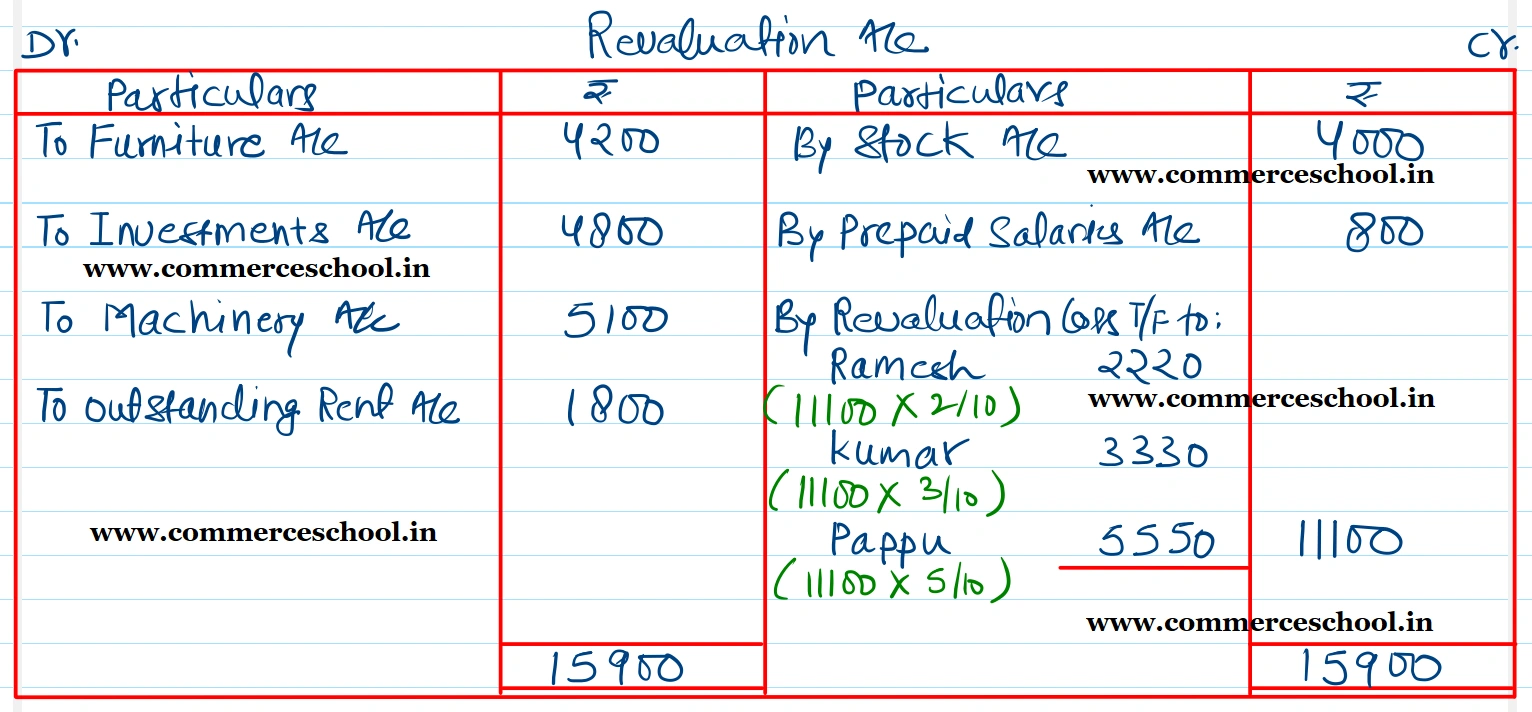 Revaluation A/c
Dr.
Cr.
Particulars ₹ Particulars ₹
To Furniture A/c 4200 By Stock A/c 4000
www.commerceschool.in
To Investments A/c 4800 By Prepaid Salaries A/c 800
www.commerceschool.in
To Machinery A/c 5100 By Revaluation Loss T/F to:
Ramesh 2220
To Outstanding Rent A/c 1800 (11100 X 2/10)
www.commerceschool.in
Kumar 3330
(11100 X 3/10)
www.commerceschool.in
Pappu 5550 11100
(11100 X 5/10)
www.commerceschool.in
15900 15900